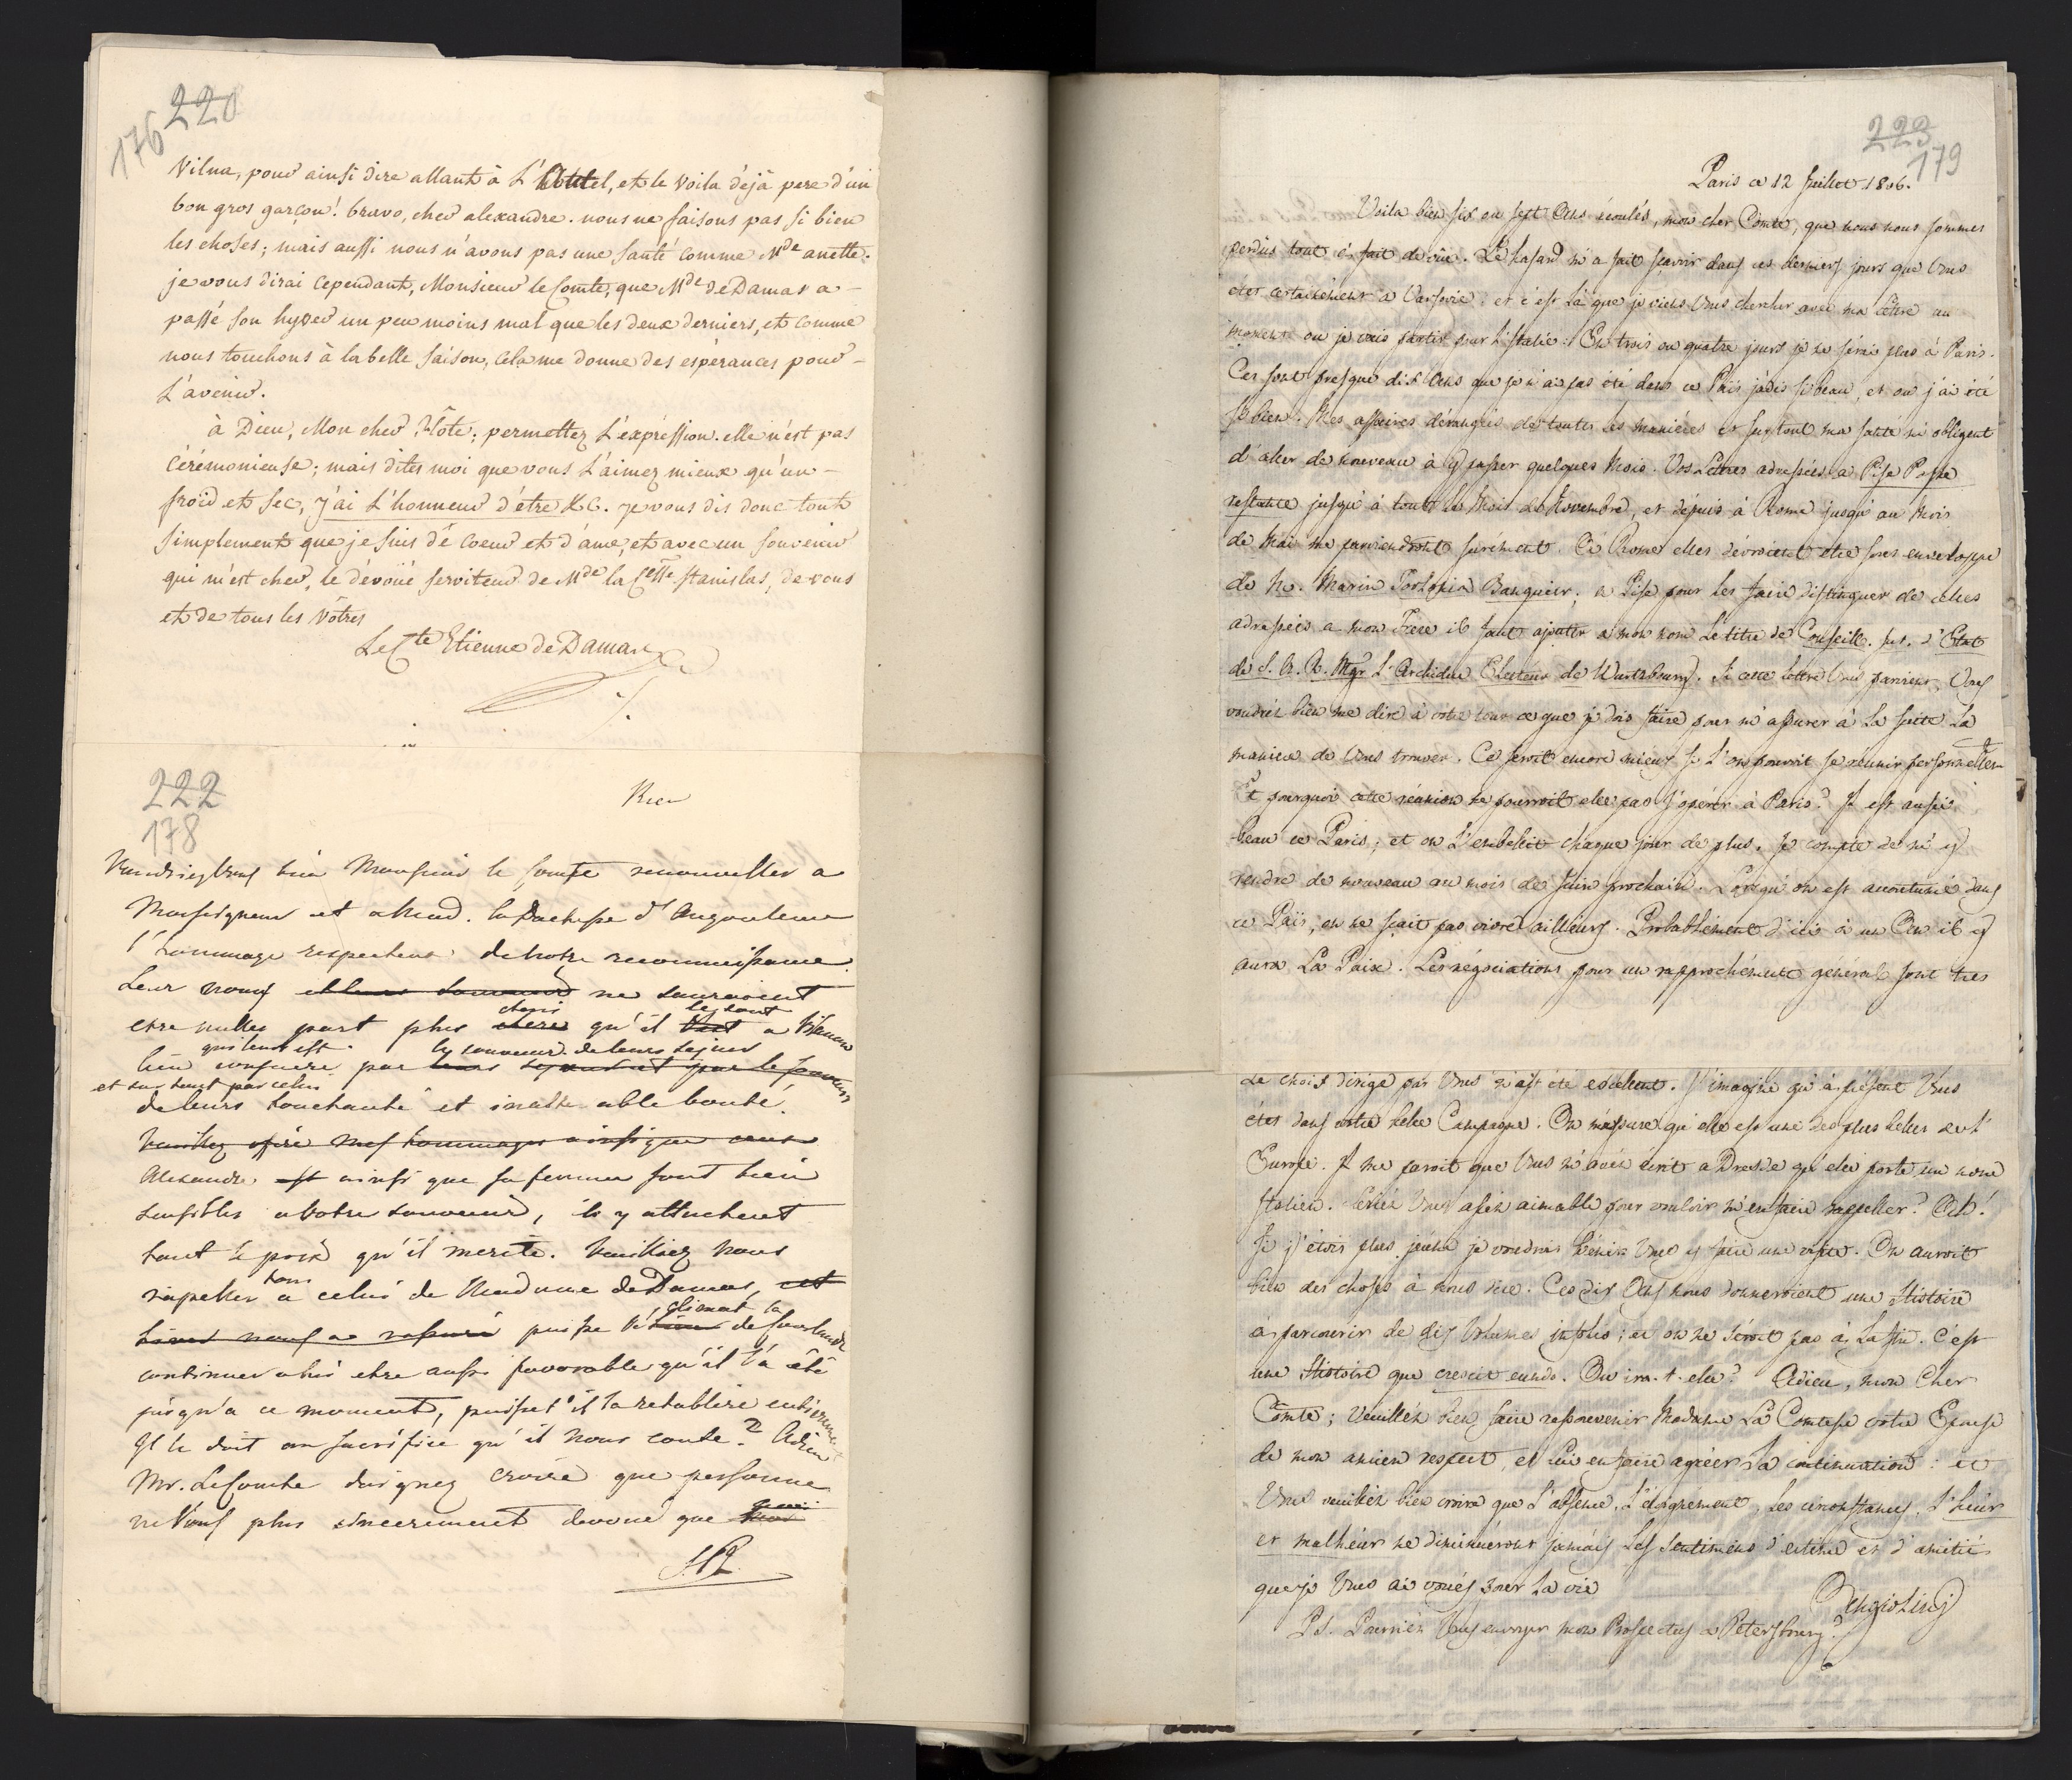 220
176
Vilna, pour ainsi dire allant à L'Autel, et le voila déjà pere d'un
bon gros garçon! bravo, cher alexandre. nous ne faisons pas si bien
les choses; mais aussi nous n'avons pas une santé comme Mde anette.
je vous dirai cependant, Monsieur le Comte, que Mde de Damas a
passé son hyver un peu moins mal que les deux derniers, et comme
nous touchons à la belle saison, cela me donne des espérances pour
L'avenir.
à Dieu, Mon cher hôte; permettez L'expréssion. elle n'est pas
cérémonieuse; mais dites moi que vous L'aimez mieux qu'un
froid et sec, j'ai L'honneur d'être &c. je vous dis donc tout
simplement que je suis de coeur et d'ame, et avec un souvenir
qui m'est cher, le dévoüé serviteur de Mde la Ctesse stanislas, de vous
et de tous les vôtres
Le Cte Etienne de Damas
222
178
Voudriez vous bien Monsieur le Comte renouveller a
Monseigneur et a Mad. la Duchesse d'Angouleme
l'hommage respectueux de notre reconnoissance.
Leur noms ne sauroient
etre nulle part plus cheris qu'il le sont a
lieu consacré par le souvenir de leurs sejour
et sur tout par celui
de leurs touchante et inalterable bonté.
Veuillez offrir mes hommages ainsi que ceux
Alexandre est ainsi que sa femme sont bien
sensibles a votre souvenir, ils y attachent
tout le prix qu'il merite. Veuillez nous
rapeller tous a celui de Madame de Damas, et
puisse le climat de la Courlande
continuer a lui etre aussi favorable qu'il l'a été
jusqu'a ce moment, puisse t'il la retablire entierement
Il le doit au sacrifice qu'il nous coute. Adieu
Mr. Le Comte daignez croire que personne
ne vous plus sincerement devoué que
223
179
Paris ce 12 Juillet 1806.
Voila bien six ou sept Ans écoulés, mon cher Comte, que nous nous sommes
perdus tout à fait de vüe. Le hasard m'a fait sçavoir dans ces derniers jours que Vous
étes certainement a Varsovie: et c'est là que je viens Vous chercher avec ma lettre au
moment ou je vais partir pour L'Italie. En trois ou quatre jours je ne serai plus à Paris.
Ces sont presque dix Ans que je n'ai pas été dans ce Païs jadis si beau, et ou j'ai été
si bien. Mes affaires dérangées de toutes les manières et surtout ma santé m'obligent
d'aller de nouveau à y passer quelques Mois. Vos Lettres adressées a Pise Poste
restante jusqu'à tout le Mois de Novembre, et dépuis à Rome jusqu'au Mois
de Mai me parviendront surément. A Rome elles dévroient etre sous enveloppe
de M. Marin Torlonia Banquier; a Pise pour les faire distinguer de celles
adressées a mon Frere il faut ajouter a mon nom Le titre de Conseill. int. d'Etat
de S. A. R. Mgr L'Archiduc Electeur de Wurtzbourg. Si cette lettre Vous parvient, Vous
voudrés bien me dire à votre tour ce que je dois faire pour m'assurer à La suite La
maniere de Vous trouver. Ce seroit encore mieux si L'on pouvoit se réunir personnellemt
Et pourquoi cette réunion ne pourroit elle pas s'opérer à Paris? Il est aussi
beau ce Paris; et on L'embellit chaque jour de plus. Je compte de m'y
rendre de nouveau au mois de Juin prochain. Lorsqu'on est accoutumé dans
ce Païs, on ne sçait pas vivre ailleurs. Probablement d'ici à un An il y
aura La Paix. Les négociations pour un rapprochément général sont tres
Le choix dirigé par Vous n'ait été excellent. J'imagine qu'à présent Vous
étes dans votre belle Campagne. On m'assure qu'elle est une des plus belles de l'
Europe. Il me paroit que Vous m'avéz ecrit a Dresde qu'elle porte un nom
Italien. Seriéz Vous assés aimable pour vouloir m'en faire rappeller? Ah!
Si j'etois plus jeune je voudrois venir Vous y faire une visite. On auroit
bien des choses à nous dire. Ces dix Ans nous donneroient une Histoire
à parcourir de dix Volumes in folio; et on ne seroit pas à La fin. C'est
une Histoire que crescit eundo. Ou ira-t-elle? Adieu, mon Cher
Comte; Veuilléz bien faire ressouvenir Madame La Comtesse votre Epouse
de mon ancien respect, et lui en faire agréer La continuation: et
Vous veuilléz bien croire que L'absence, L'éloignement, les circonstances, L'heur
et malhéur ne diminuéront jamais Les sentimens d'estime et d'amitié
que je Vous ai voués pour La vie
Angiolini
P.S. Pourriéz Vous envoyer mon Prospectus a Petersbourg?